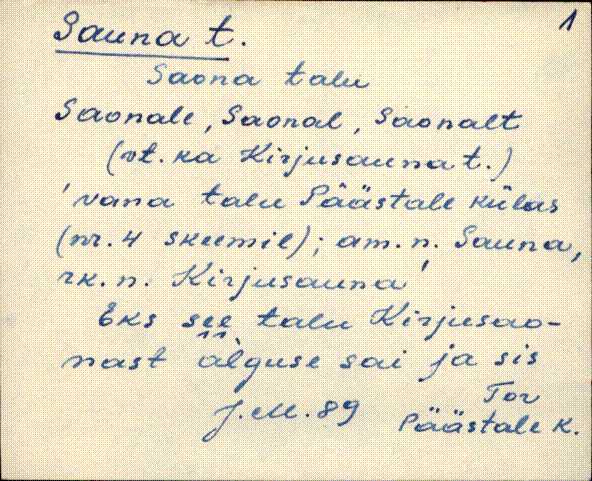 1
Sauna t.
Saona talu
Saonale, Saonal, Saonalt
(vt. ka Kirjusauna t.)
'vana talu Päästale külas
(nr. 4 skeemil); am. n. Sauna,
rk. n. Kirjusauna'
Eks see talu Kirjusao-
nast alguse sai ja sis
J.M. 89
Tor
Päästale k.